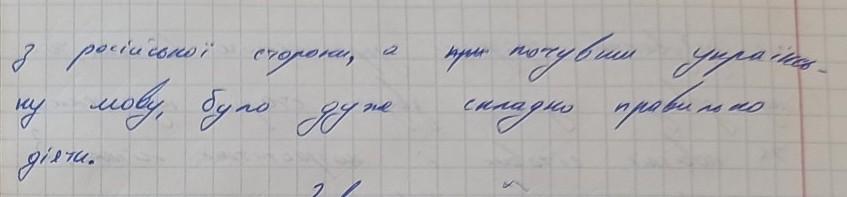 з російської сторони, а почувши українсь-
ку мову, було дуже складно правильно
діяти.